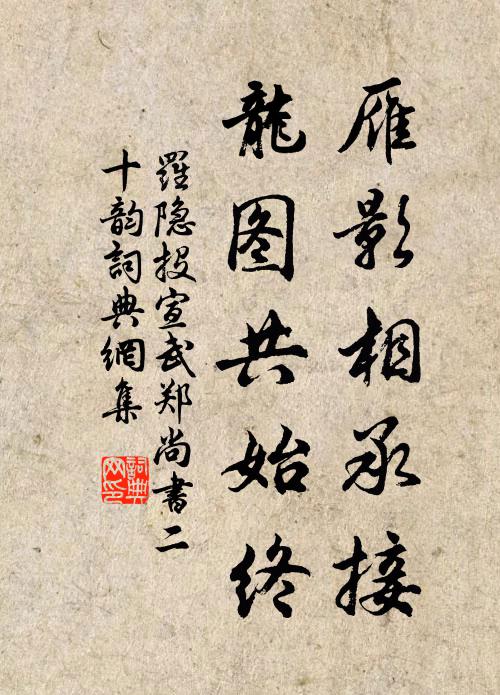 雁影相承接
龍图共始终
羅隐投宣武郑尚書二
十韵詞典網集
詞典
网印